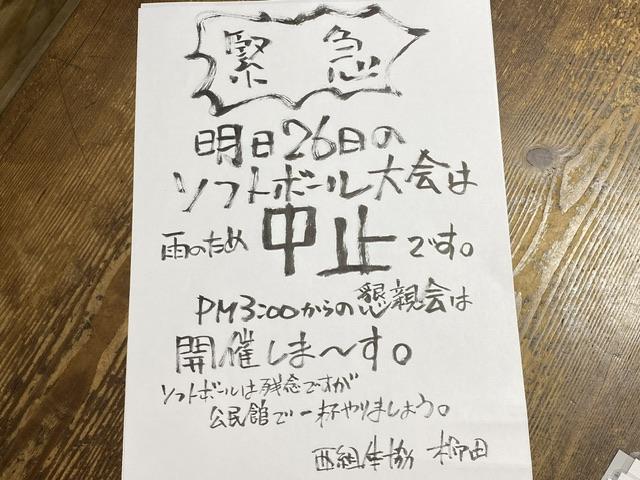 緊急
明日26日の
ソフトボール大会は
雨のため 中止です。
PM3:00からの懇親会は
開催しま〜す。
ソフトボールは残念ですが
公民館で一杯やりましょう。
西組生協 柳田